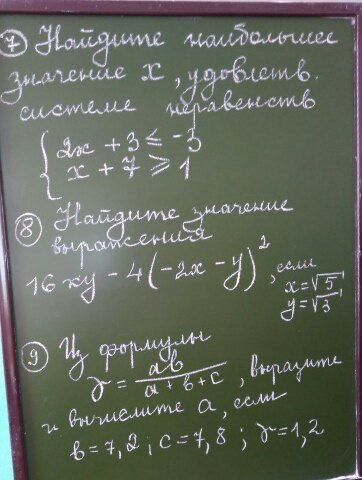 ⑦ Найдите наибольшее
значение x, удовлетв.
системе неравенств
{ 2x + 3 ≤ -3
x + 7 ≥ 1
⑧ Найдите значение
выражения
16xy - 4(-2x - y)², если
x = √5
y = √3
⑨ Из формулы
r = ab / (a + b + c), выразите
и вычислите a, если
b = 7,2; c = 7,8; r = 1,2